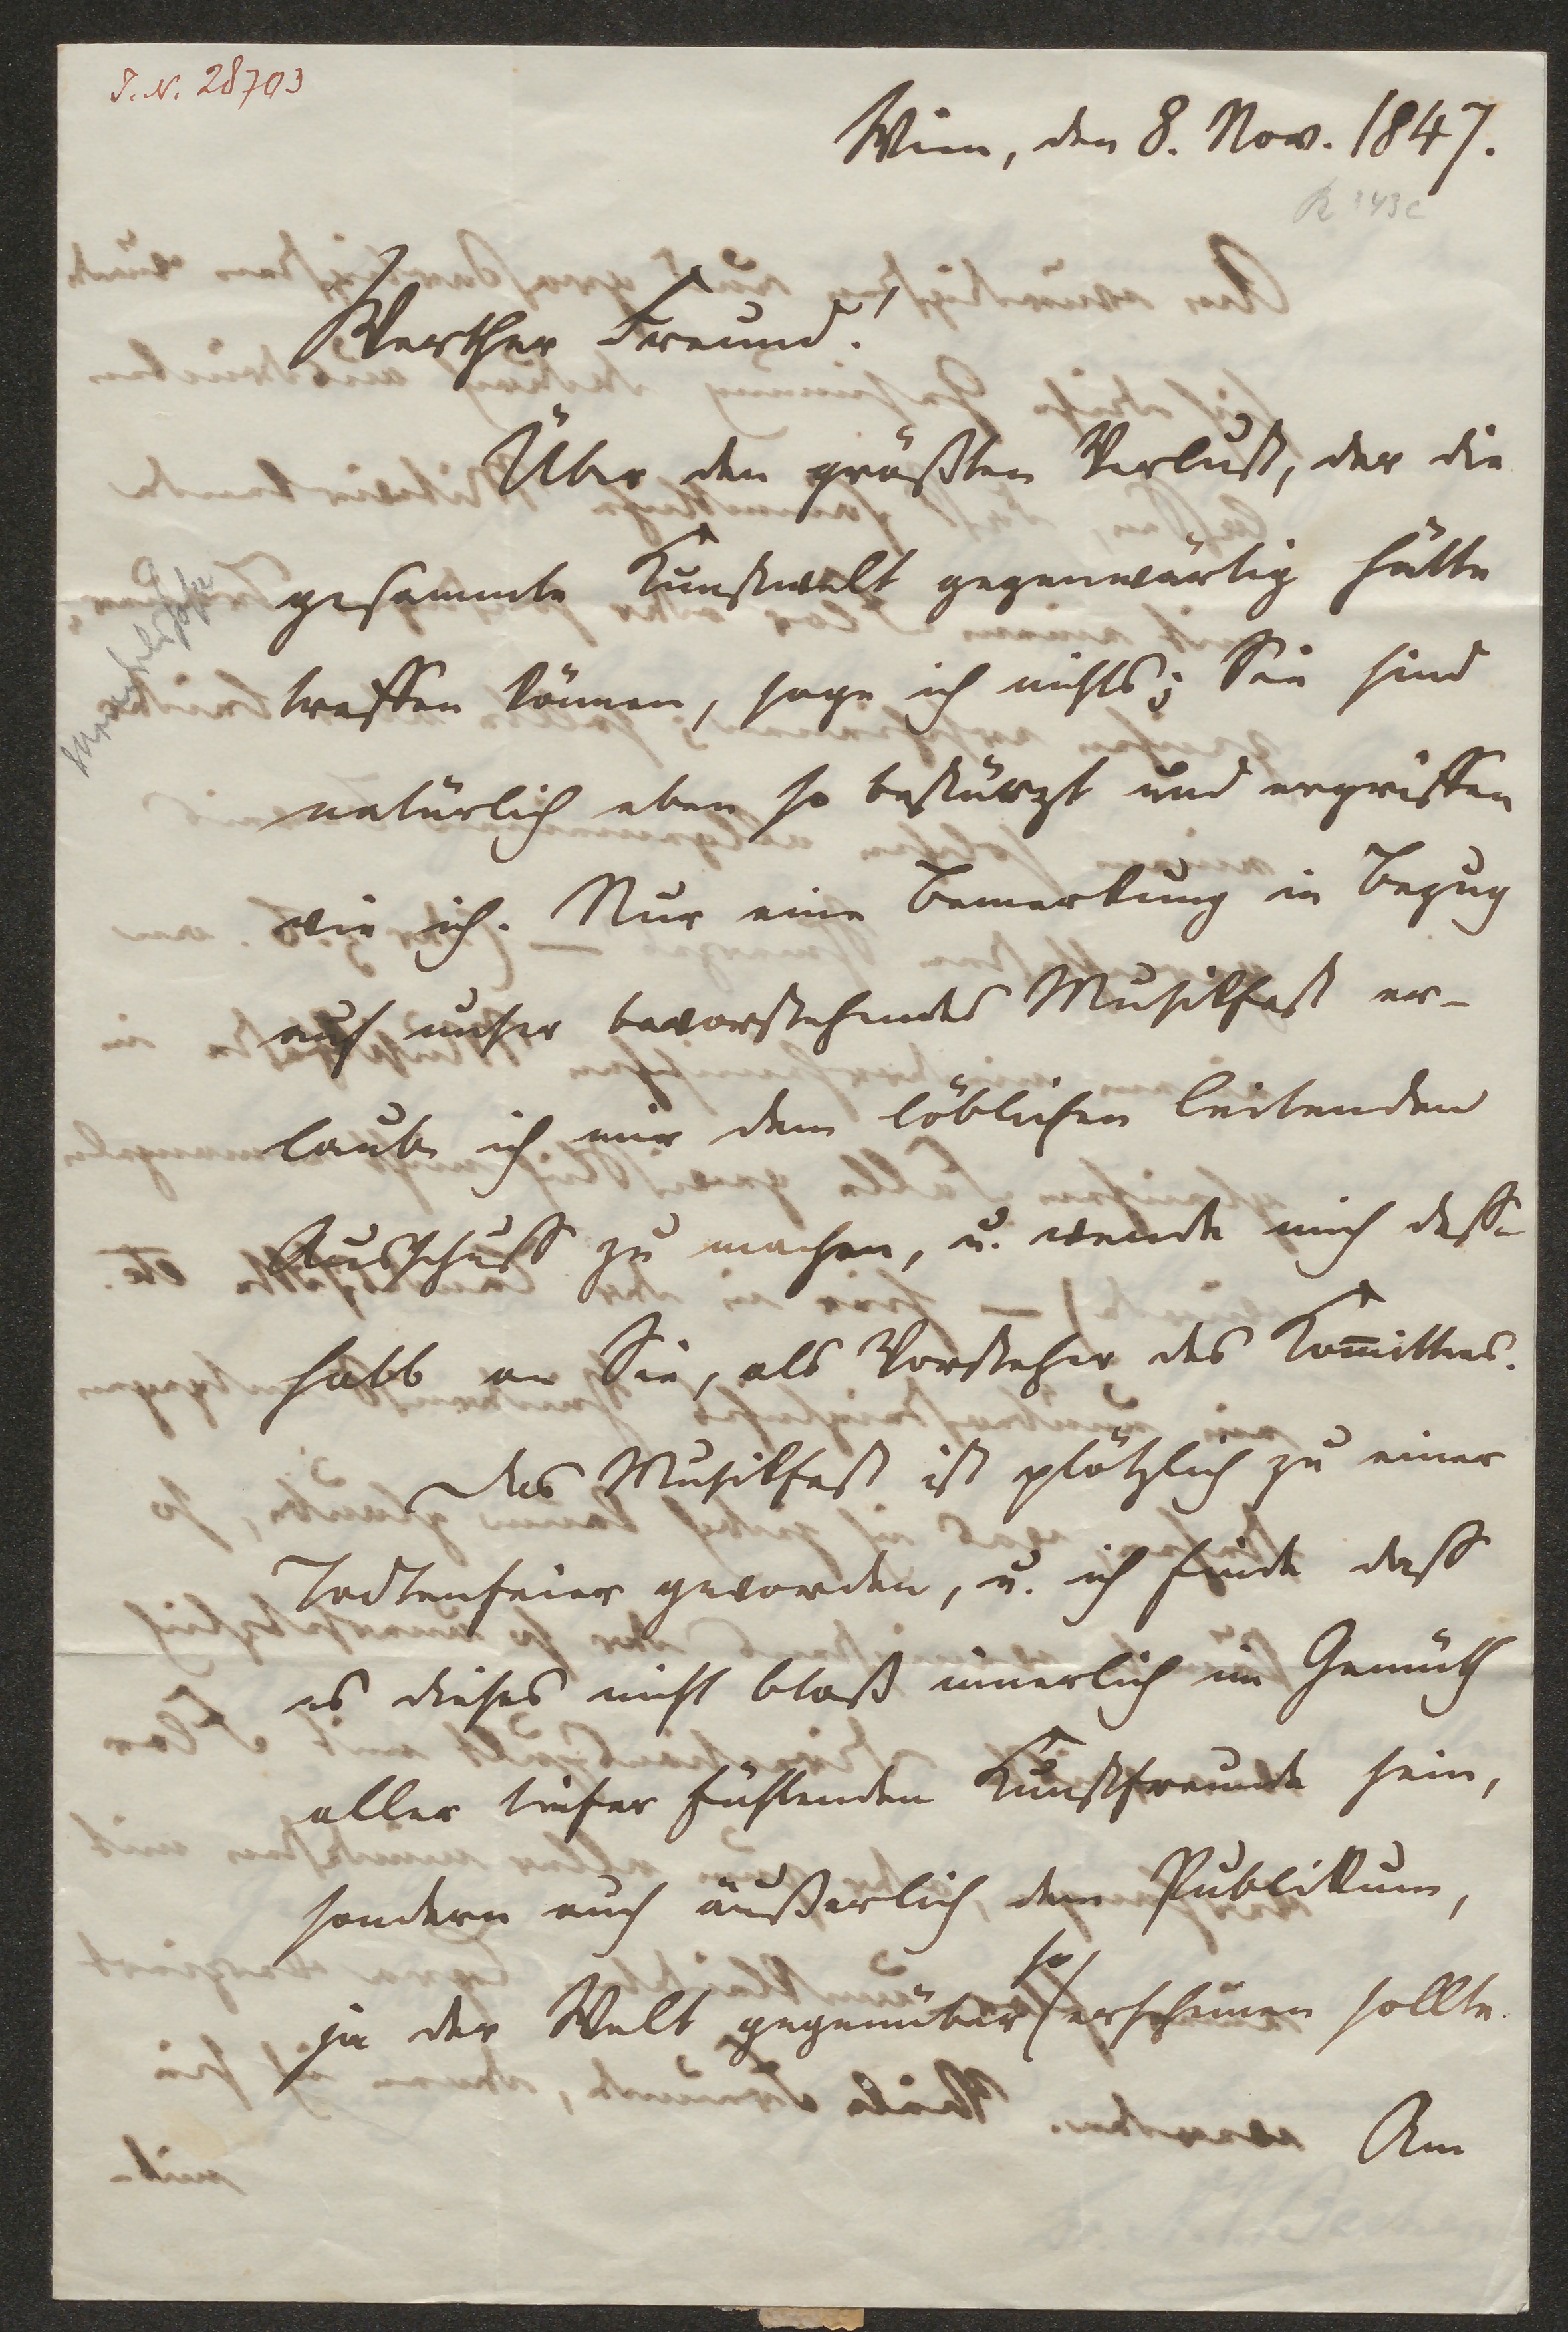 I. N. 28703
Wien, den 8. Nov. 1847.
Werther Freund!
Über den größten Verlust, der die
gesammte Kunstwelt gegenwärtig hätte
treffen können, sage ich nichts; Sie sind
natürlich eben so bestürzt und ergriffen
wie ich. Nur eine Bemerkung in Bezug
auf unser bevorstehendes Musikfest er-
laube ich mir dem löblichen leitenden
Ausschuss zu machen, u. wende mich dess-
halb an Sie, als Vorsteher des Kom̅ittees.
Das Musikfest ist plötzlich zu einer
Todtenfeier geworden, u. ich finde dass
es dieses nicht bloß innerlich im Gemüth
aller tiefer fühlenden Kunstfreunde sein,
sondern auch äußerlich dem Publikum,
ja der Welt gegenüber so erscheinen sollte.
Am